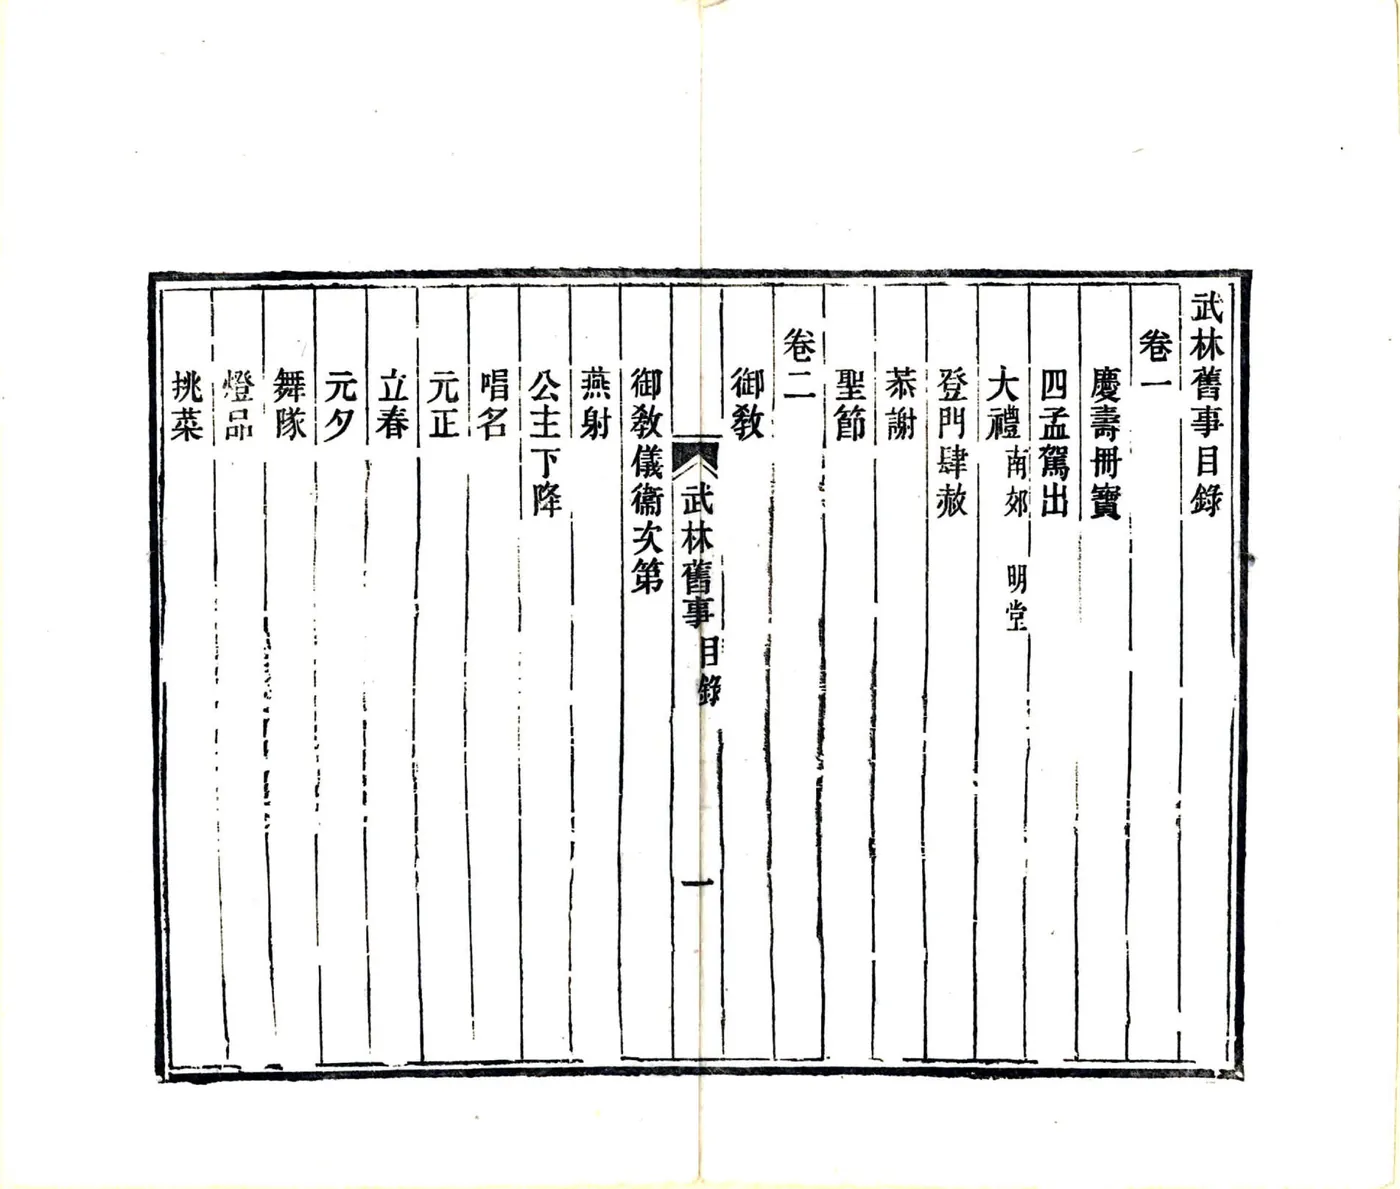 武林舊事目錄
卷一
慶壽冊寶
四孟駕出
大禮 南郊 明堂
登門肆赦
恭謝
聖節
卷二
御敎
武林舊事 目錄 一
御敎儀衞次第
燕射
公主下降
唱名
元正
立春
元夕
舞隊
燈品
挑菜